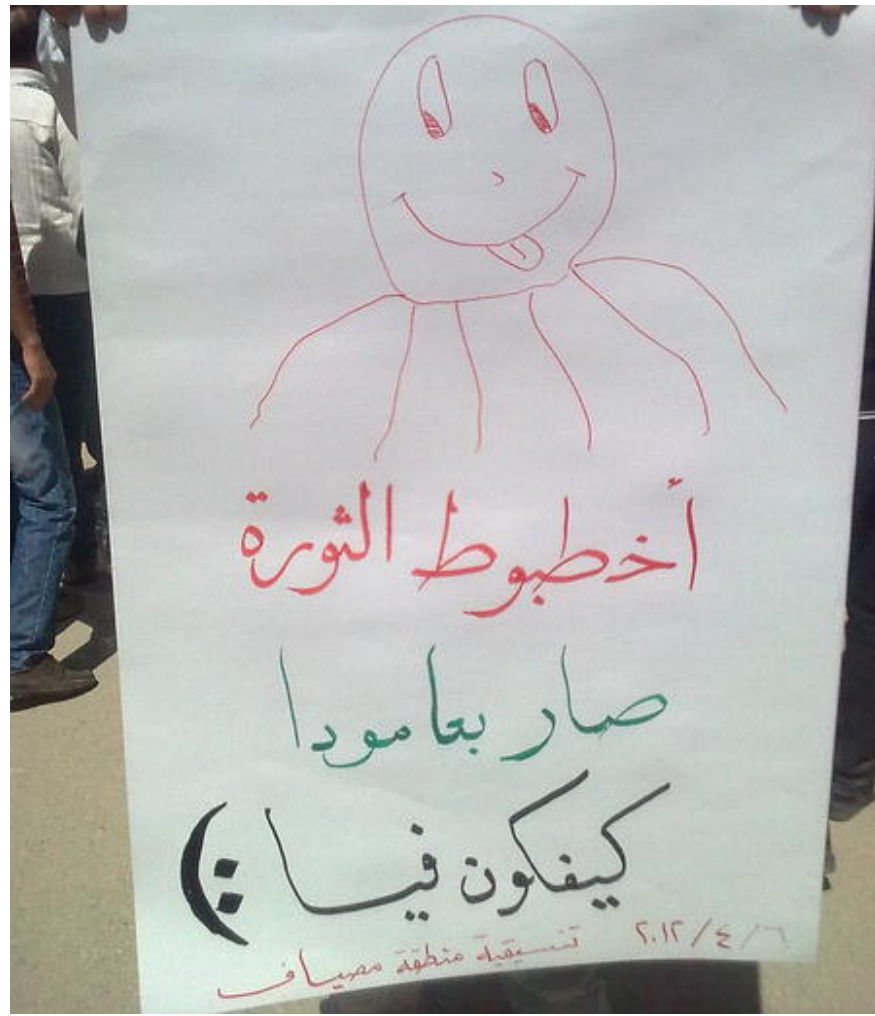 أخطبوط الثورة
صار بعامودا
كيفكون فيا :)
٢٠١٢/٤/٦
تنسيقية منطقة مصياف